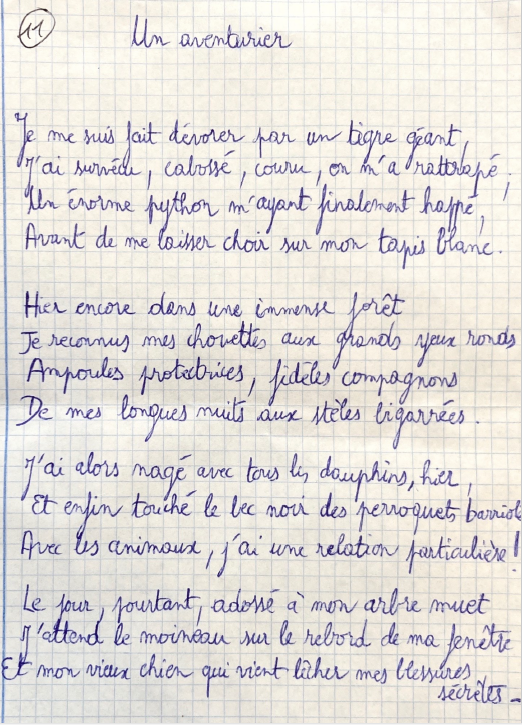 11
Un aventurier
Je me suis fait dévorer par un tigre géant,
J'ai survécu, cabossé, couru, on m'a rattrapé ;
Un énorme python m'ayant finalement happé,
Avant de me laisser choir sur mon tapis blanc.
Hier encore dans une immense forêt
Je reconnus mes chouettes aux grands yeux ronds
Ampoules protectrices, fidèles compagnons
De mes longues nuits aux stèles bigarrées.
J'ai alors nagé avec tous les dauphins, hier,
Et enfin touché le bec noir des perroquets barriol
Avec les animaux, j'ai une relation particulière !
Le jour, pourtant, adossé à mon arbre muet
J'attend le moineau sur le rebord de ma fenêtre
Et mon vieux chien qui vient lêcher mes blessures
secrètes.